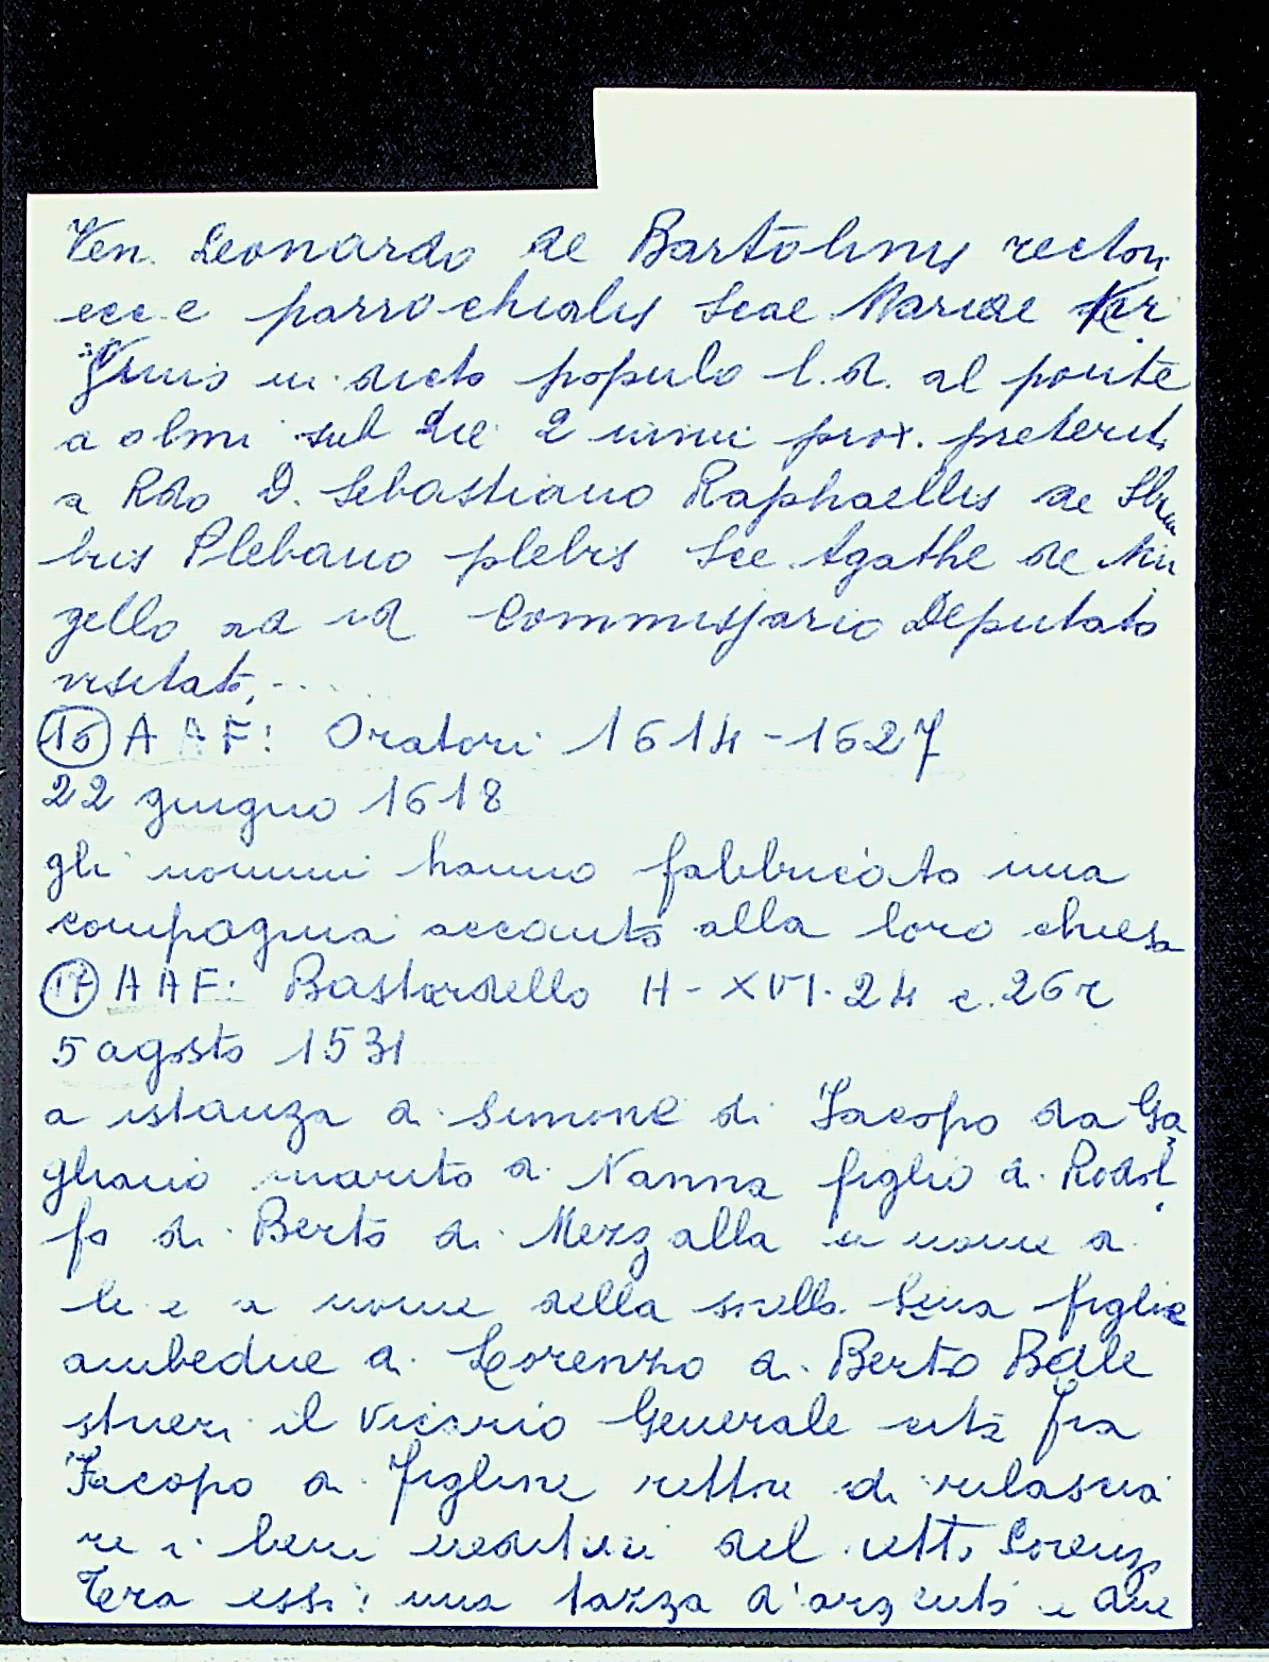 Ven. Leonardo de Bartolinis rectori
ecc.e parrochialis Scae Mariae Vir
ginis in dicto populo l.d. al ponte
a olmi sub die 2 prox. preteriti
a Rdo D. Sebastiano Raphaellis de
bris Plebano plebis Sce Agathe de Mu
gello ad id Commissario Deputato
visitat....
16 AAF: Oratori 1614-1627
22 giugno 1618
gli uomini hanno fabbricato una
compagnia accanto alla loro chiesa
17 AAF: Bastardello H-XVI.24 c.26r
5 agosto 1531
a istanza di Simone di Jacopo da Ga
gliano marito di Nanna figlio di Rodol
fo di Berto di Mezzalla in nome di
lei e a nome della sorella figlie
ambedue di Lorenzo di Berto Bale
strieri il Vicario Generale cita fra
Jacopo di Figline rettore di rilascia
re i beni ereditari del detto Lorenzo
Tera essi: una tazza d'argento e due